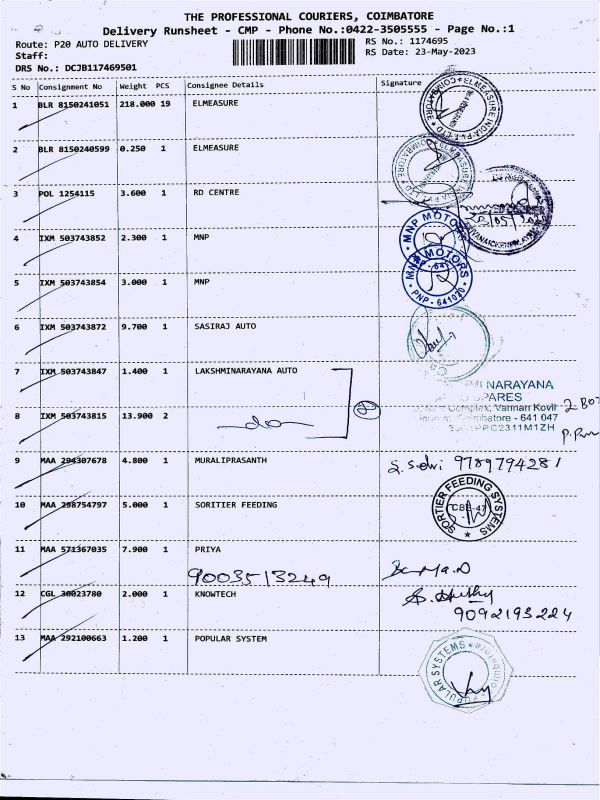 THE PROFESSIONAL COURIERS, COIMBATORE
Delivery Runsheet - CMP - Phone No.:0422-3505555 - Page No.:1
Route: P20 AUTO DELIVERY RS No.: 1174695
Staff: RS Date: 23-May-2023
DRS No.: DCJB117469501
S No Consignment No Weight PCS Consignee Details Signature
1 BLR 8150241051 218.000 19 ELMEASURE
ELMEASURE INDIA PVT LTD COIMBATORE
2 BLR 8150240599 0.250 1 ELMEASURE
3 POL 1254115 3.600 1 RD CENTRE
4 IXM 503743852 2.300 1 MNP
MNP MOTORS
5 IXM 503743854 3.000 1 MNP
MNP MOTORS
PNP - 641020
6 IXM 503743872 9.700 1 SASIRAJ AUTO
7 IXM 503743847 1.400 1 LAKSHMINARAYANA AUTO
NARAYANA
SPARES
Complex, Vannan Kovil
Coimbatore - 641 047
8 IXM 503743815 13.900 2 -do-
9 MAA 294307678 4.800 1 MURALIPRASANTH S. Selvi 9789794281
10 MAA 298754797 5.000 1 SORITIER FEEDING
SORTIER FEEDING SYSTEMS
CBE-47
11 MAA 571367035 7.900 1 PRIYA
9003513249
12 CGL 30023780 2.000 1 KNOWTECH
9092193224
13 MAA 292100663 1.200 1 POPULAR SYSTEM
POPULAR SYSTEMS